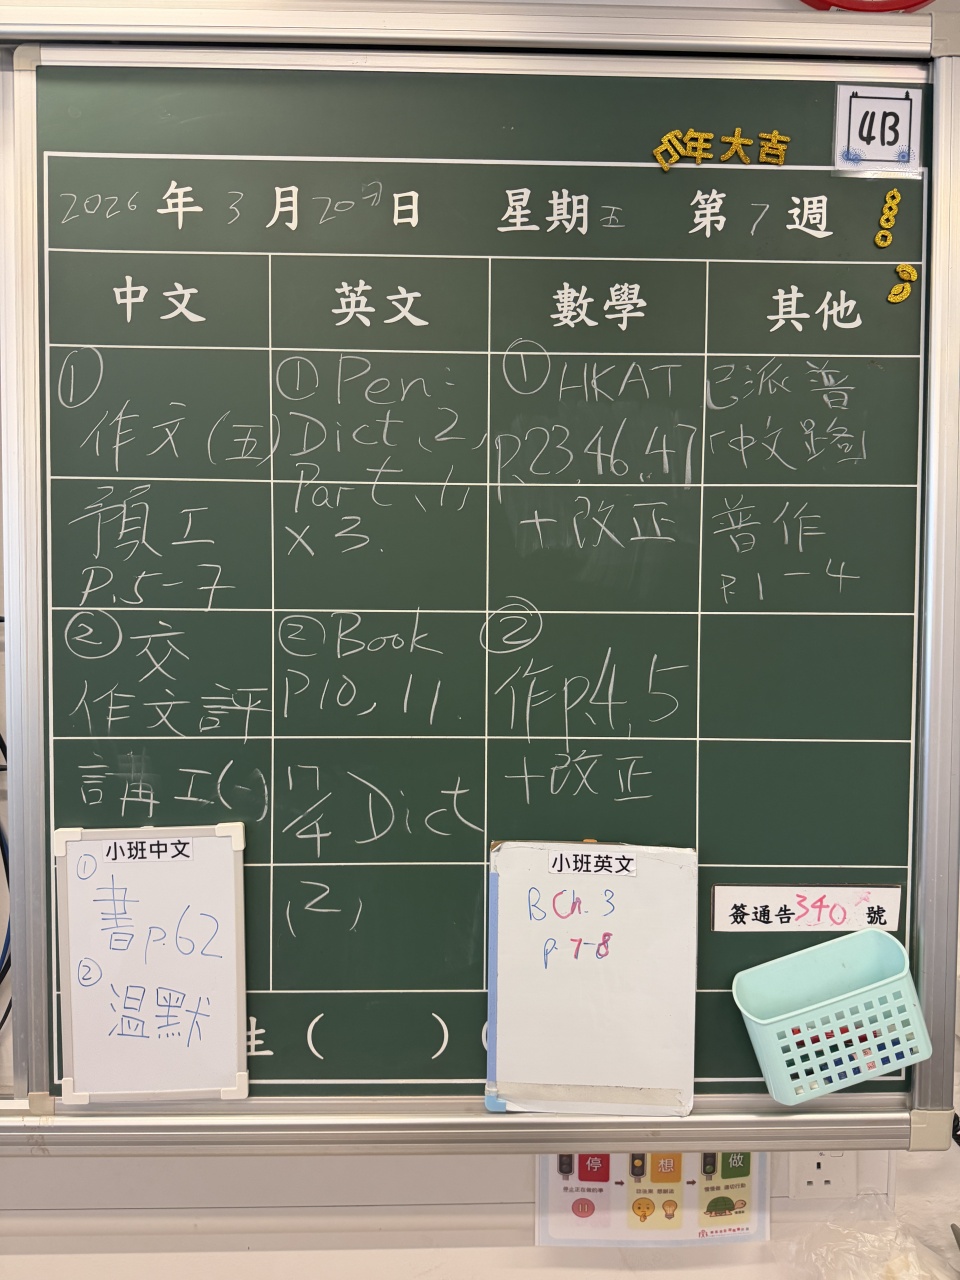 4B
年大吉
2026年3月20日 星期五 第7週
中文
英文
數學
其他
①
作文(五)
預工
P.5-7
② 交
作文評
講工(一)
① Pen:
Dict、2,
Part、1,
x 3.
② Book
P10, 11.
17/4 Dict
(2)
① HKAT
p.23,46,47
+改正
②
作p.4,5
+改正
已派普
「中文路」
普作
p.1-4
小班中文
①
書p.62
②
溫默
小班英文
B Ch. 3
p. 7-8
簽通告340號
生 ( ) (
停
想
做